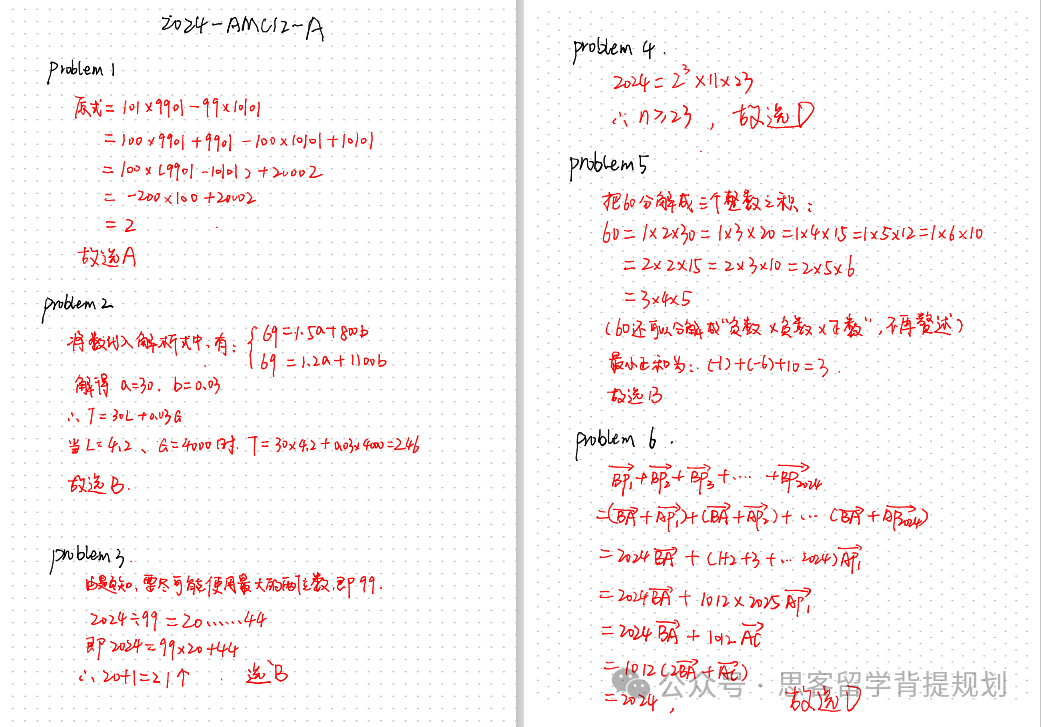 2024-AMC12-A
problem 1
原式=101×9901-99×10101
=100×9901+9901-100×10101+10101
=100×(9901-10101)+20002
=-200×100+20002
=2
故选A
problem 2
将数代入解析式中,有:{69=1.5a+800b
69=1.2a+1100b
解得 a=30. b=0.03
∴T=30L+0.03G
当L=4.2、G=4000时.T=30×4.2+0.03×4000=246
故选B.
problem 3
由题知,要尽可能使用最大的两位数,即99.
2024÷99=20……44
即2024=99×20+44
∴20+1=21个 选B
problem 4.
2024=2³×11×23
∴n≥23,故选D
problem 5
把60分解成三个整数之积:
60=1×2×30=1×3×20=1×4×15=1×5×12=1×6×10
=2×2×15=2×3×10=2×5×6
=3×4×5
(60还可以分解成"负数×负数×正数",不再赘述)
最小正和为:(-1)+(-6)+10=3.
故选B
problem 6.
BP₁+BP₂+BP₃+…+BP₂₀₂₄
=(BA+AP₁)+(BA+AP₂)+…(BA+AP₂₀₂₄)
=2024BA+(1+2+3+…2024)AP₁
=2024BA+1012×2025AP₁
=2024BA+1012AC
=1012(2BA+AC)
=2024, 故选D
公众号·思客留学背提规划